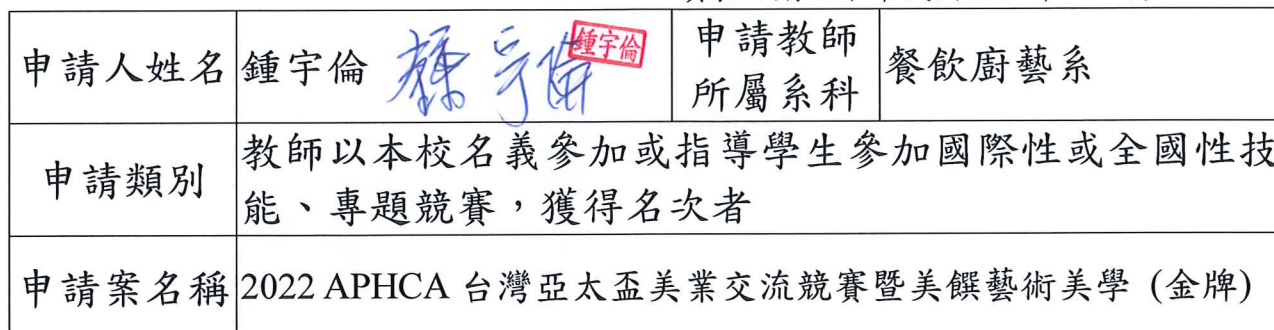 申請人姓名 鍾宇倫 鍾宇倫 鍾宇倫 申請教師所屬系科 餐飲廚藝系
申請類別 教師以本校名義參加或指導學生參加國際性或全國性技
能、專題競賽，獲得名次者
申請案名稱 2022 APHCA 台灣亞太盃美業交流競賽暨美饌藝術美學 (金牌)